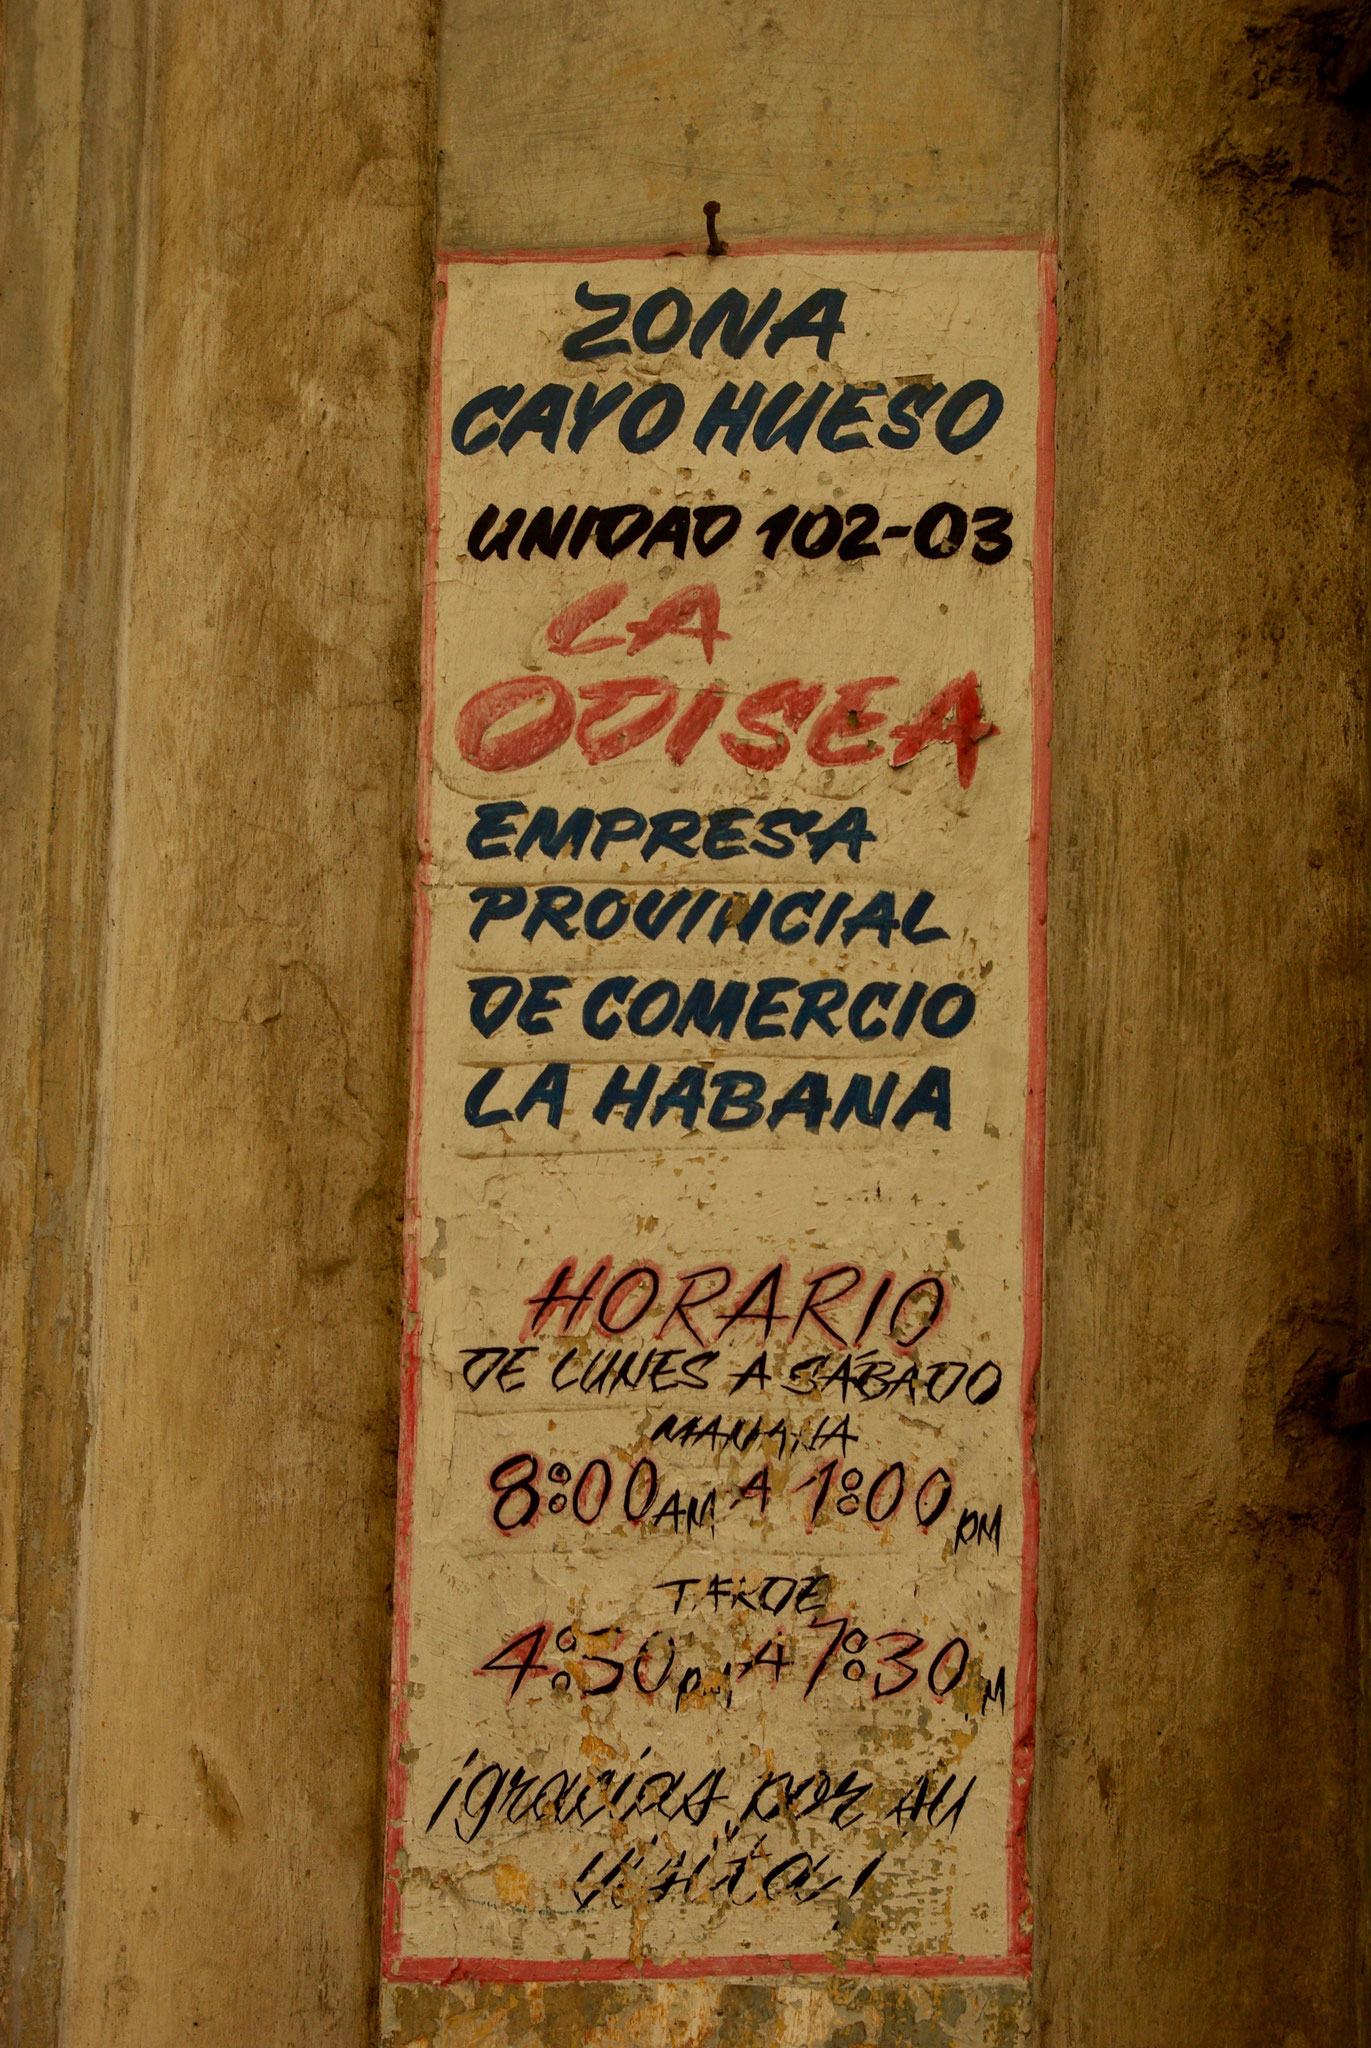 ZONA
CAYO HUESO
UNIDAD 102-03
LA
ODISEA
EMPRESA
PROVINCIAL
DE COMERCIO
LA HABANA
HORARIO
DE LUNES A SÁBADO
MAÑANA
8:00 AM A 1:00 PM
TARDE
4:30 PM A 7:30 PM
¡gracias por su
visita!